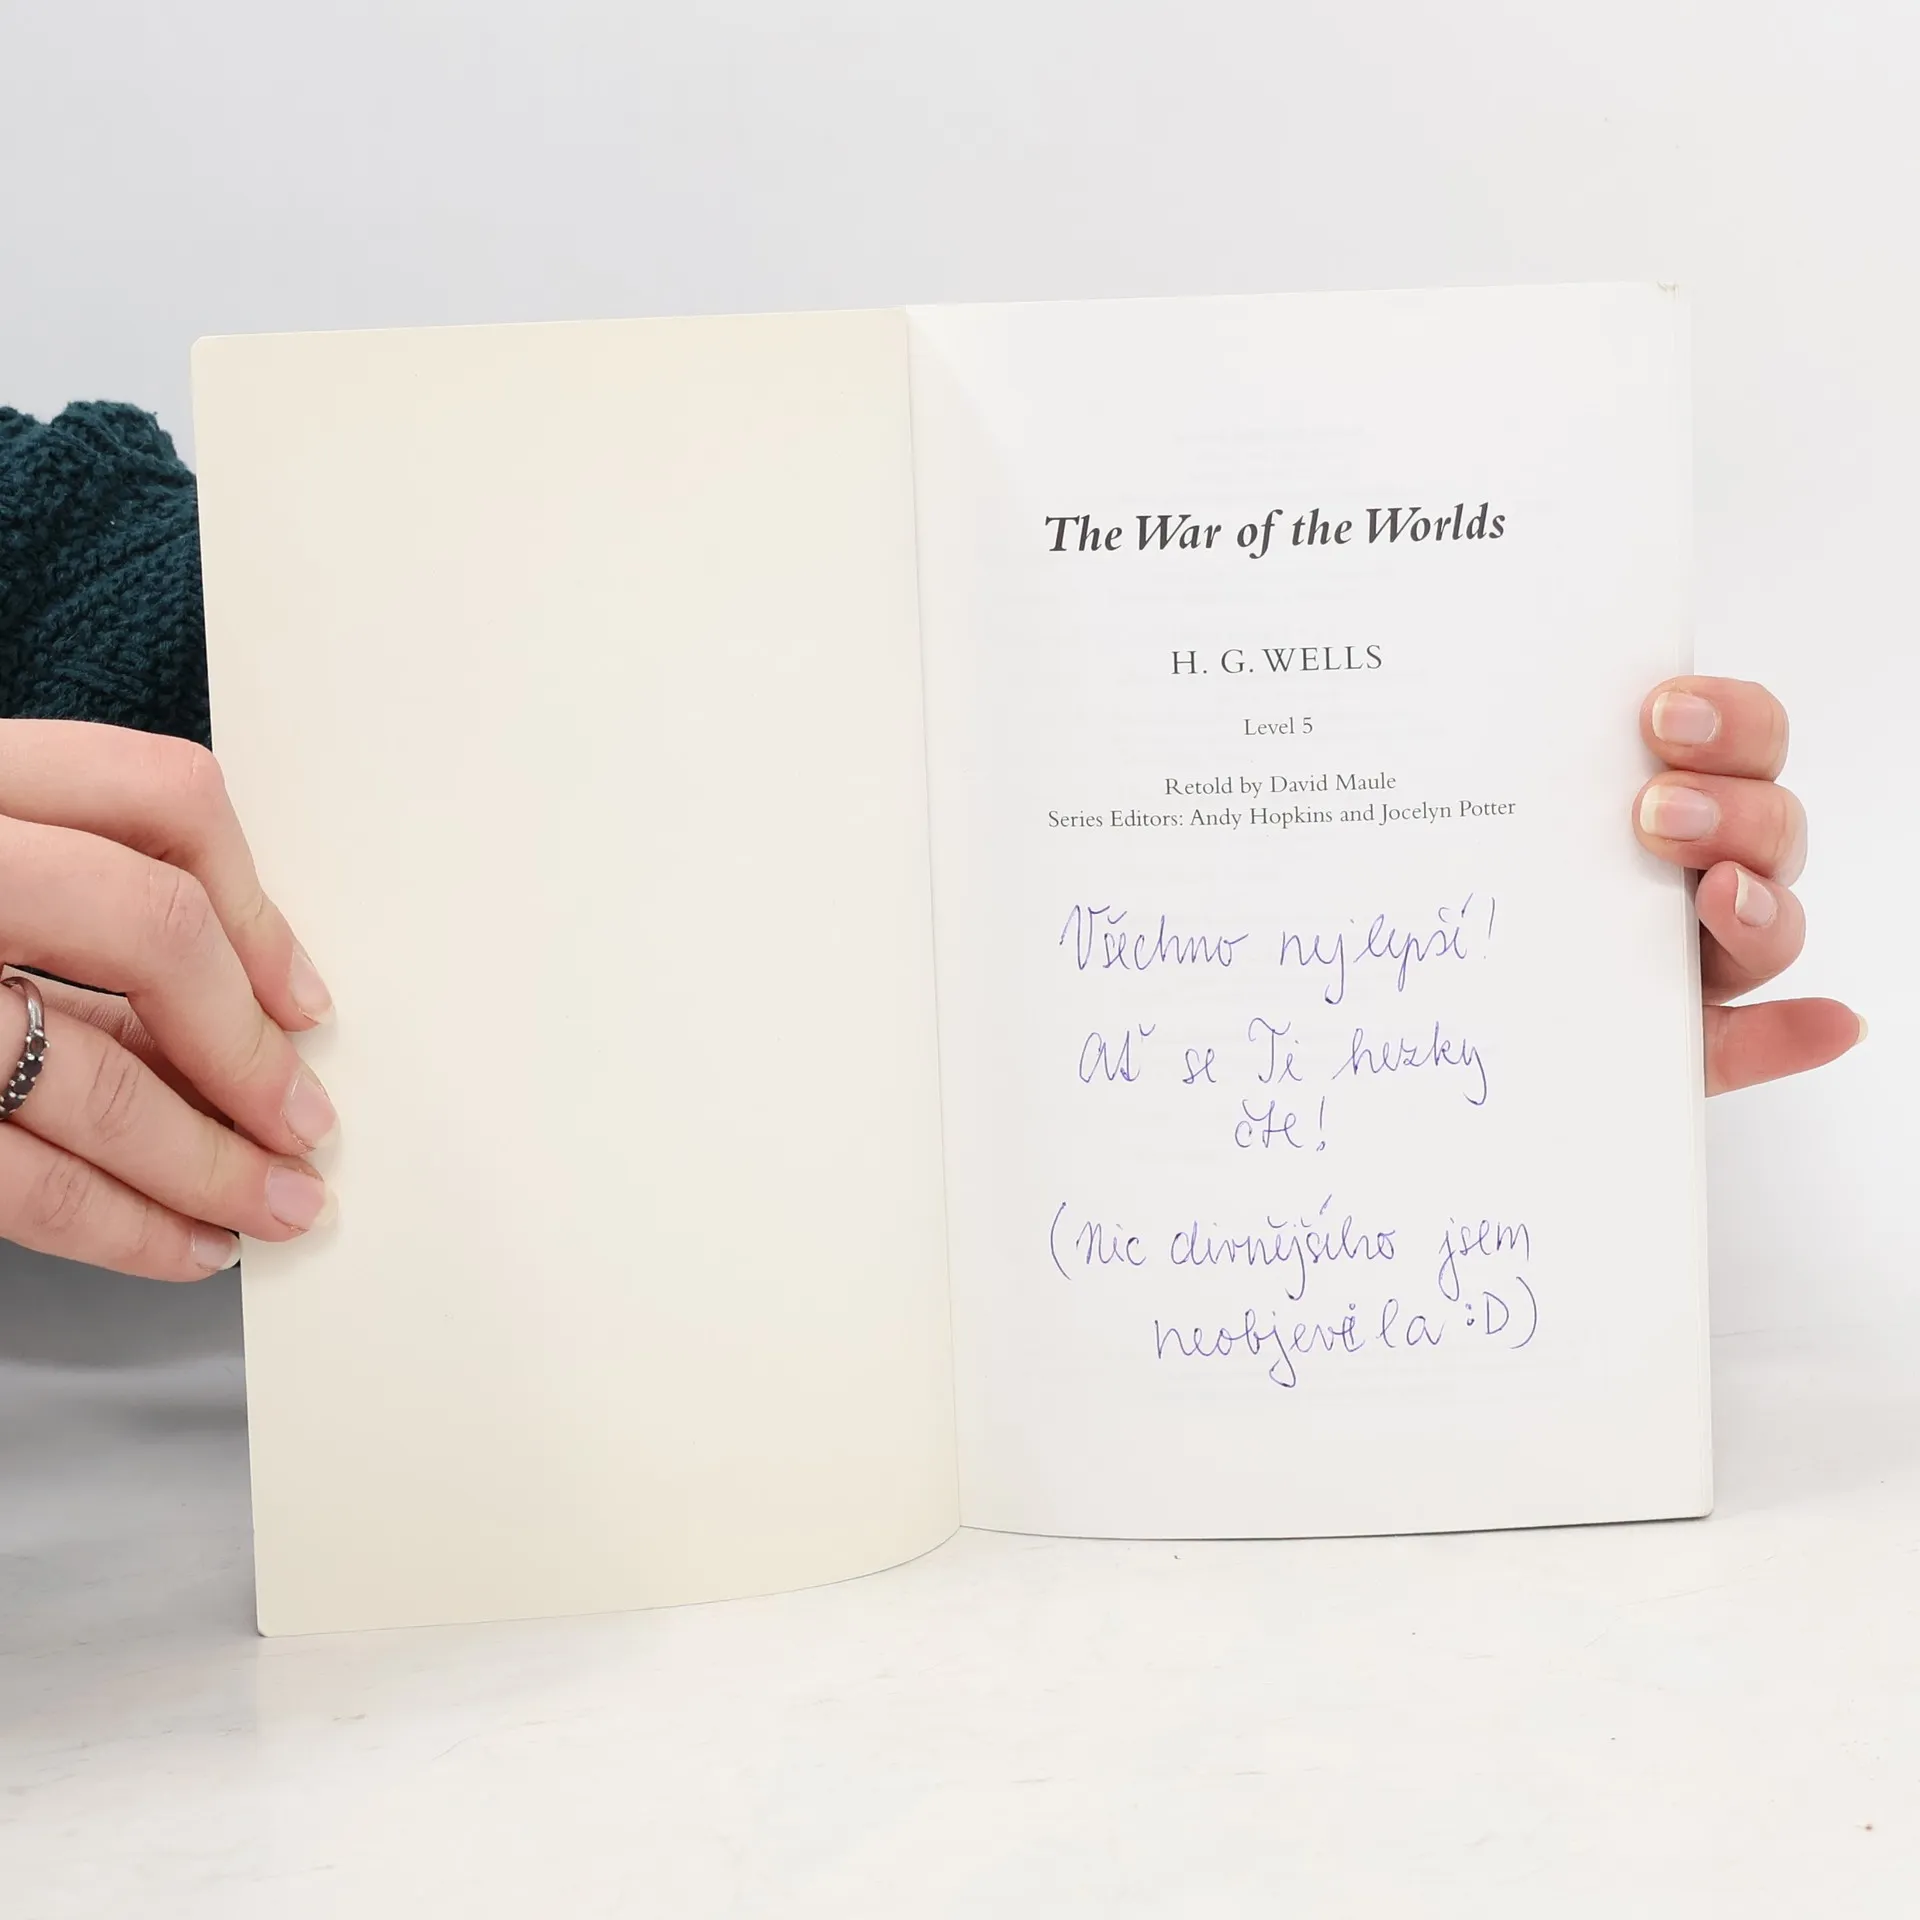 The War of the Worlds
H. G. WELLS
Level 5
Retold by David Maule
Series Editors: Andy Hopkins and Jocelyn Potter
Všechno nejlepší!
Ať se Ti hezky
čte!
(Nic divnějšího jsem
neobjevila :D)